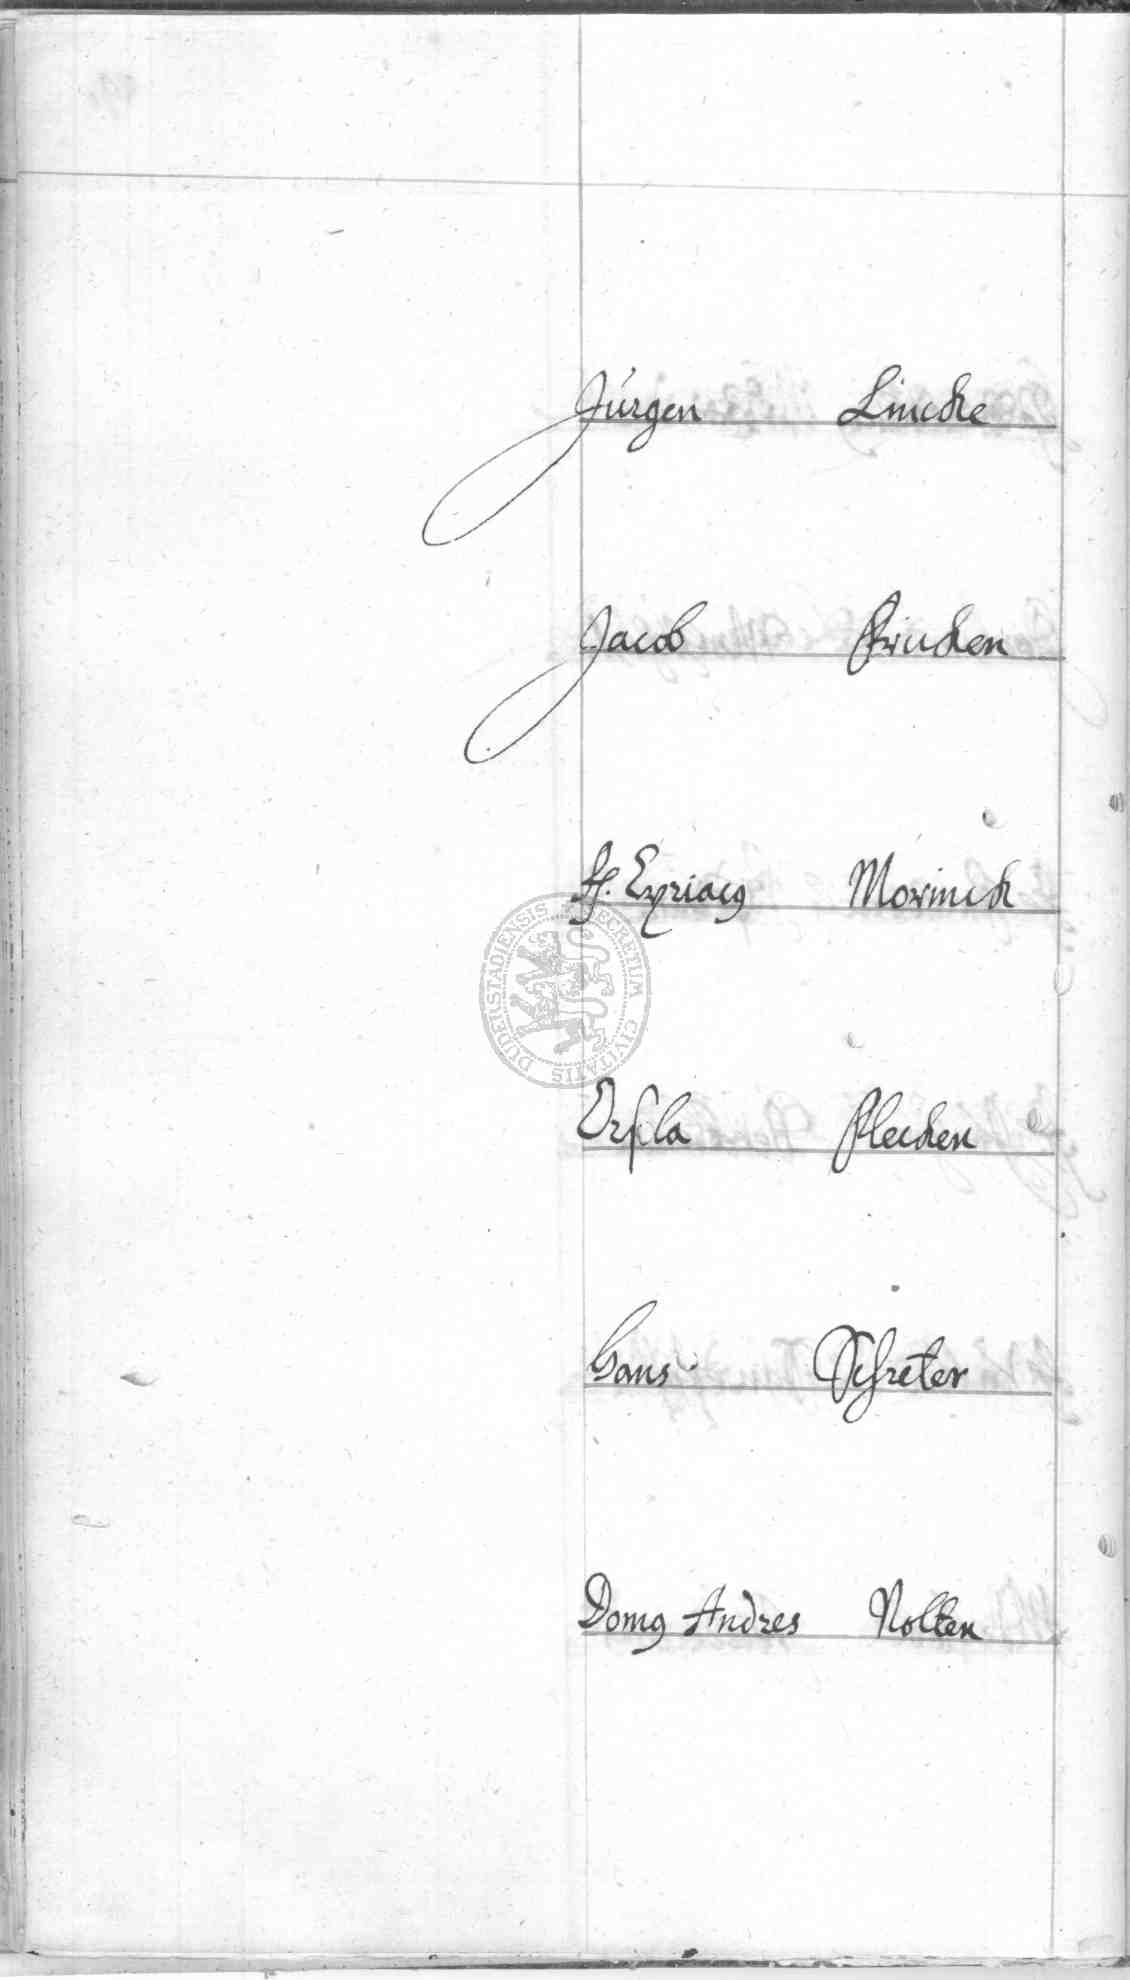 Jürgen Lincke
Jacob Fricken
H. Cyriacꝰ Morinck
DUDERSTADIENSIS SECRETUM CIVITATIS
Ursula Flecken
Hans Schreter
Domꝰ Andres Nolten